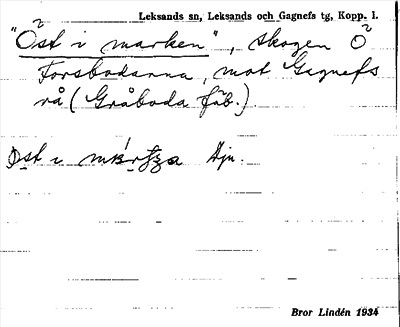 Leksands sn, Leksands och Gagnefs tg, Kopp. l.
"Öst i marken", skogen Ö
Forsbodarna, mot Gagnefs
rå (Gråboda fäb.)
Öst i Dju.
Bror Lindén 1934